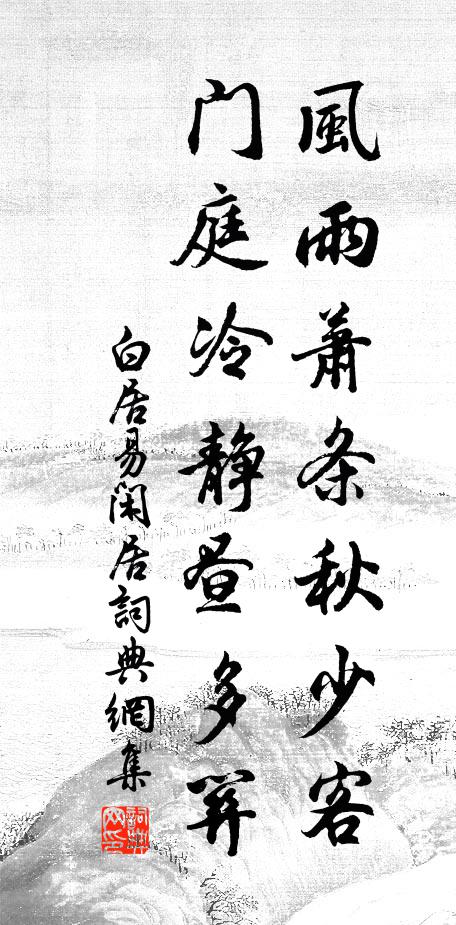 風雨蕭条秋少客
门庭冷静昼多关
白居易閑居詞典網集